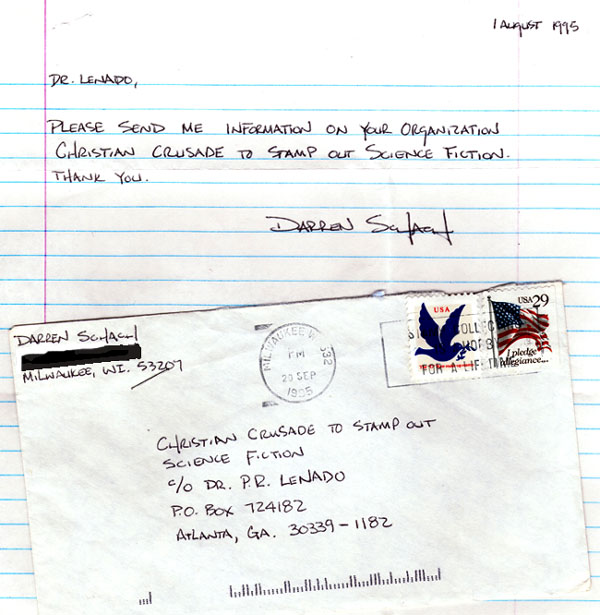 1 AUGUST 1995
DR. LENADO,
PLEASE SEND ME INFORMATION ON YOUR ORGANIZATION
CHRISTIAN CRUSADE TO STAMP OUT SCIENCE FICTION.
THANK YOU.
DARREN SCHACH
DARREN SCHACH
MILWAUKEE, WI. 53207
MILWAUKEE W 532
PM
20 SEP
1995
USA
USA 29
I pledge
allegiance...
FOR A LIFETIME
CHRISTIAN CRUSADE TO STAMP OUT
SCIENCE FICTION
c/o DR. P.R. LENADO
P.O. BOX 724182
ATLANTA, GA. 30339-1182